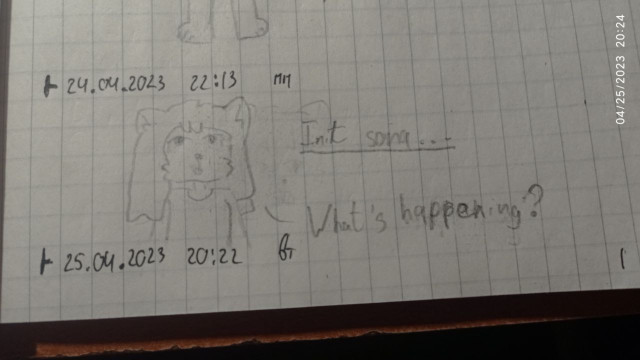 ⊢ 24.04.2023 22:13 пн
Init sona...
What's happening?
⊢ 25.04.2023 20:22 вт
04/25/2023 20:24